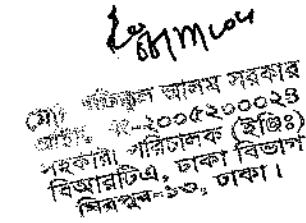 (মোঃ শহিদুল আলম সরকার
আইডি নং-২০০৫২০০০২৩
সহকারী পরিচালক (ইঞ্জিঃ)
বিআরটিএ, ঢাকা বিভাগ
মিরপুর-১৩, ঢাকা।